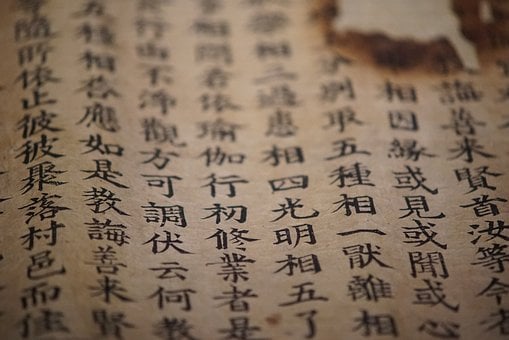 誨善來賢首汝等今者
相因緣或見或聞或心
別取五種相一厭離相
樂相三過患相四光明相五了
相問若依瑜伽行初修業者是
行由不淨觀方可調伏云何教
五種相答應如是教誨善來賢
隨所依止彼彼聚落村邑而住